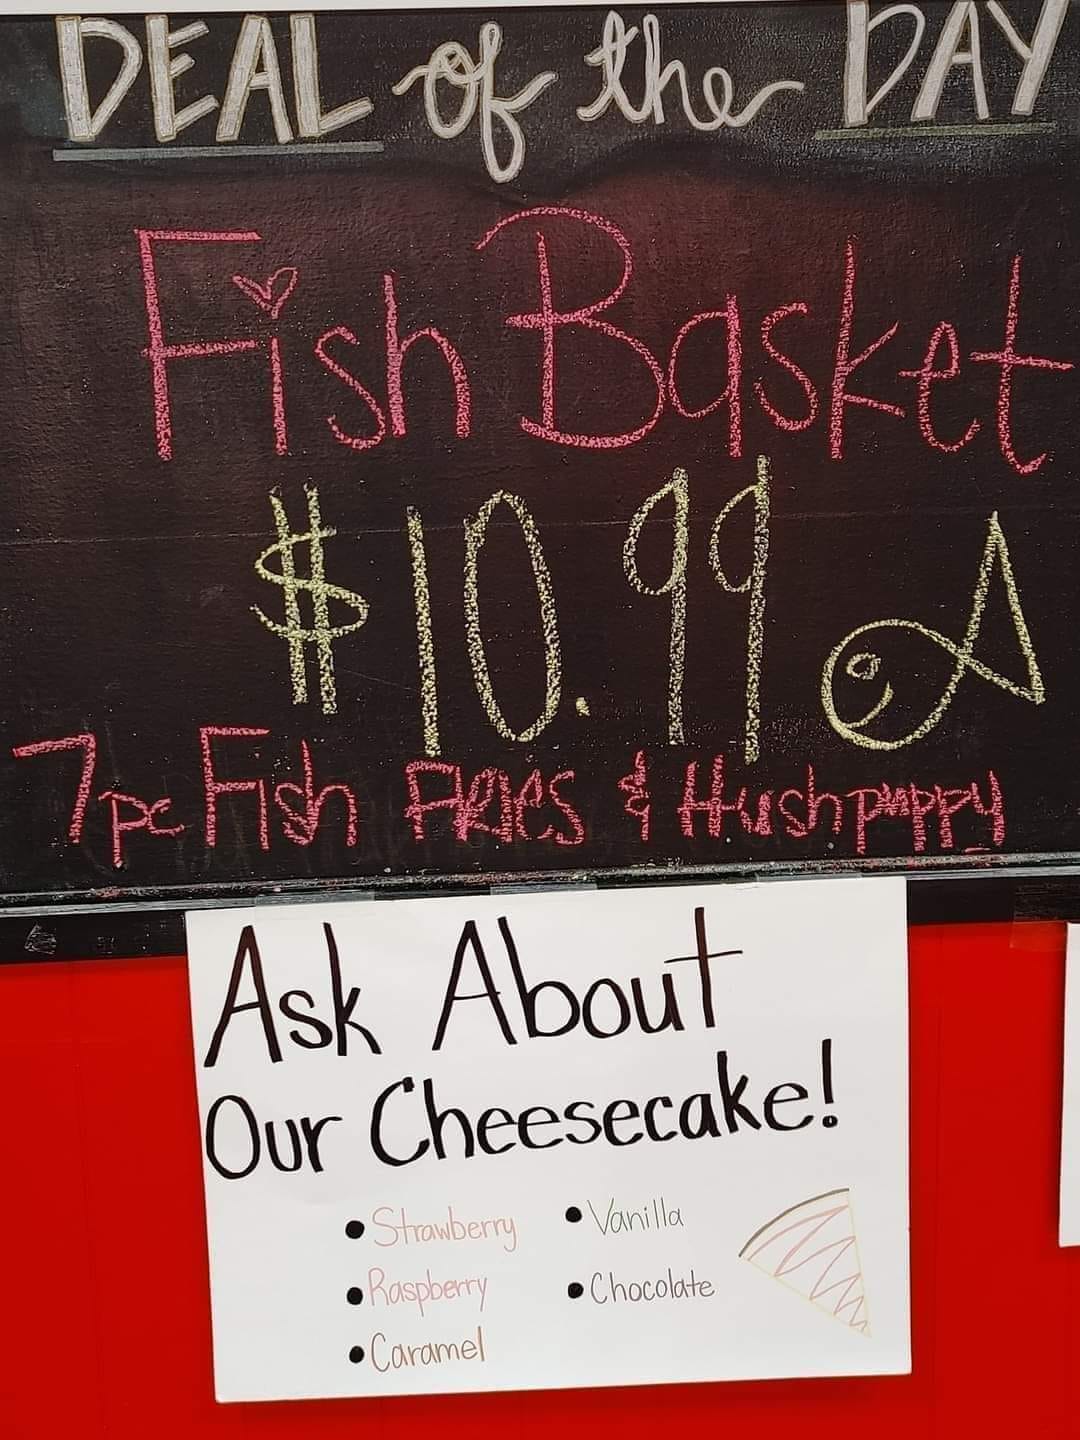 DEAL of the DAY
Fish Basket
$10.99
7pc Fish FRIES & Hushpuppy
Ask About
Our Cheesecake!
• Strawberry • Vanilla
• Raspberry • Chocolate
• Caramel